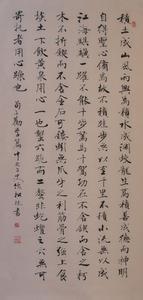 積土成山風雨興焉積水成淵蛟龍生焉積善成德而神明
自得聖心備焉故不積跬步無以至千里不積小流無以成
江海騏驥一躍不能十步駑馬十駕功在不舍鍥而舍之朽
木不折鍥而不舍金石可鏤蚓無爪牙之利筋骨之強上食
埃土下飲黃泉用心一也蟹六跪而二螯非蛇蟺之穴無可
寄托者用心躁也 荀子勸學篇 書